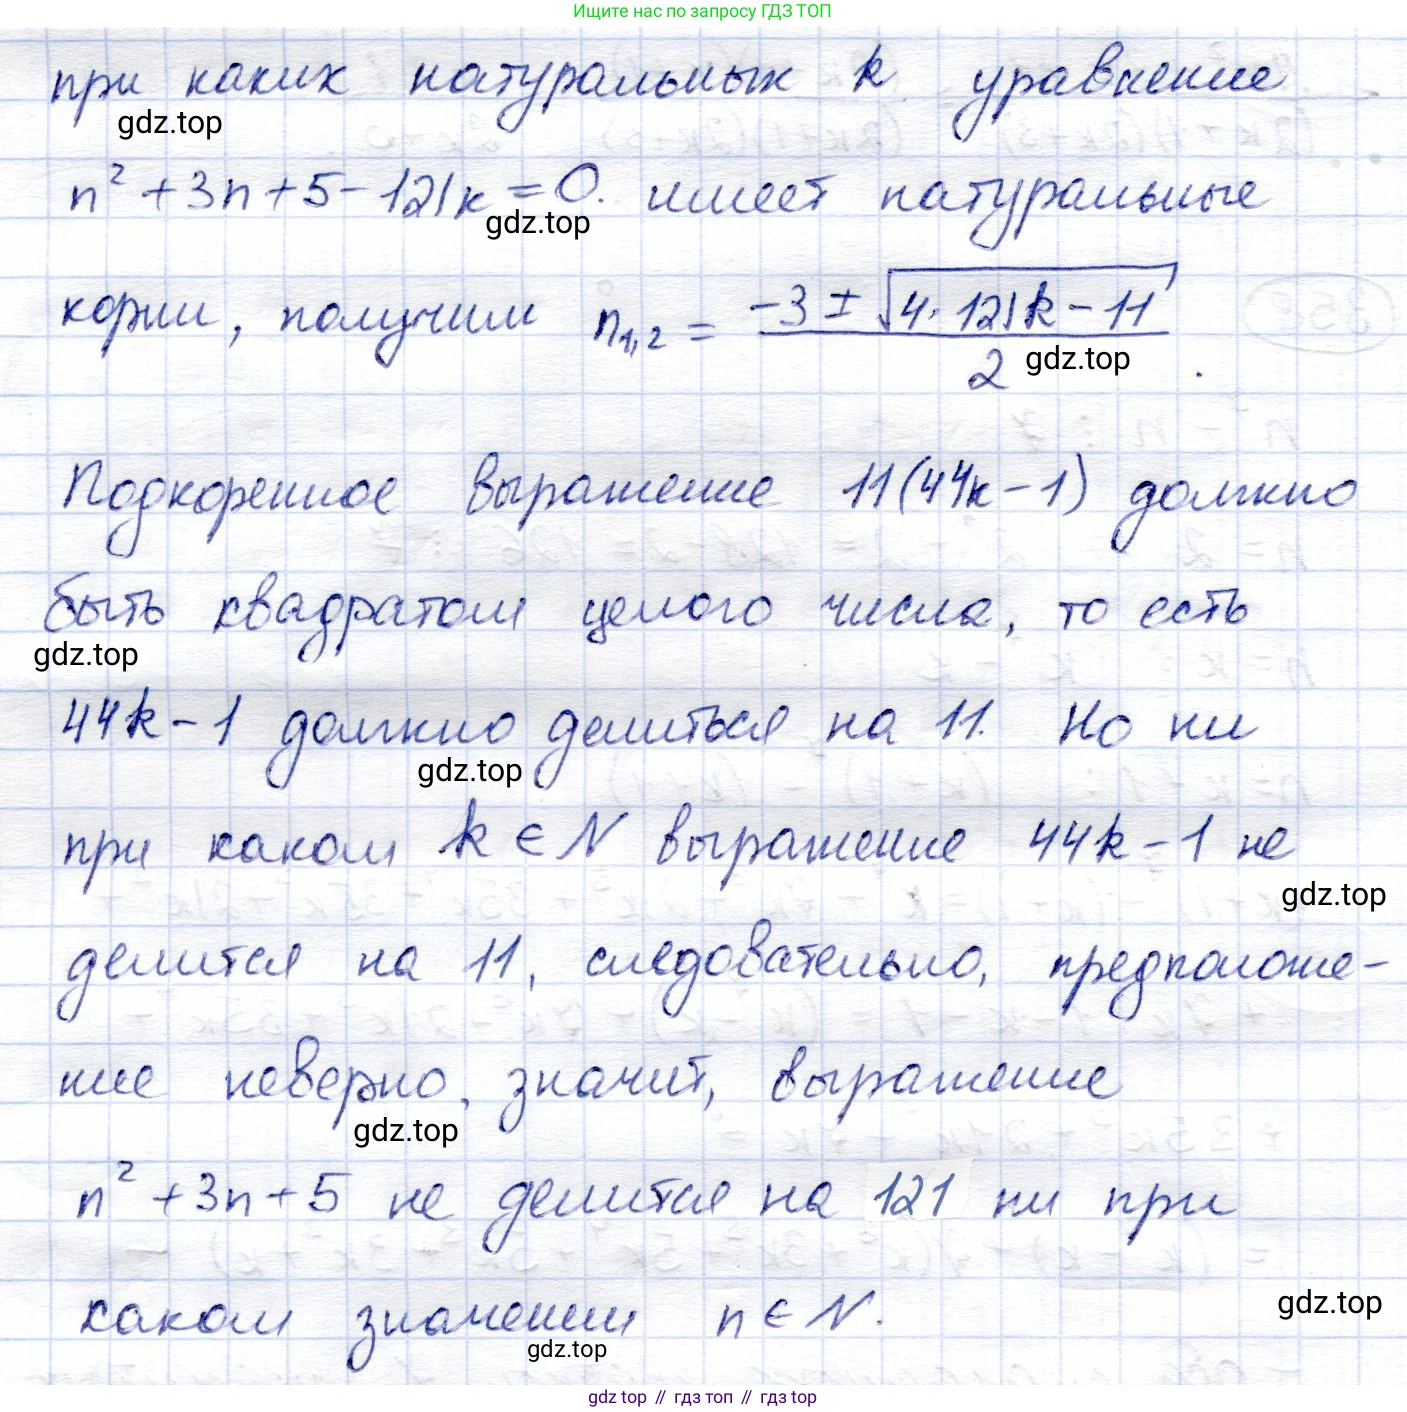 Ищите нас по запросу ГДЗ ТОП
при каких натуральных k уравнение
gdz.top
n² + 3n + 5 - 121k = 0. имеет натуральные
gdz.top
корни, получим n₁,₂ = (-3 ± √(4·121k - 11)) / 2.
gdz.top
Подкоренное выражение 11(44k - 1) должно
быть квадратом целого числа, то есть
gdz.top
44k - 1 должно делиться на 11. Но ни
gdz.top
при каком k ∈ N выражение 44k - 1 не
gdz.top
делится на 11, следовательно, предположе-
ние неверно, значит, выражение
gdz.top
n² + 3n + 5 не делится на 121 ни при
каком значении n ∈ N.
gdz.top
gdz.top
gdz top // гдз топ // гдз top